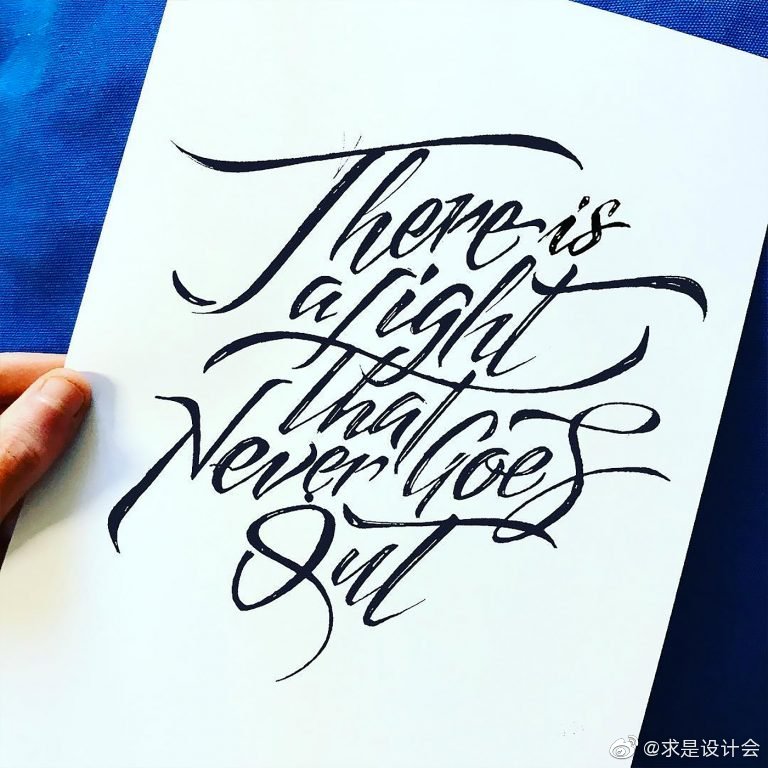 There is
a light
that
Never Goes
Out
@求是设计会